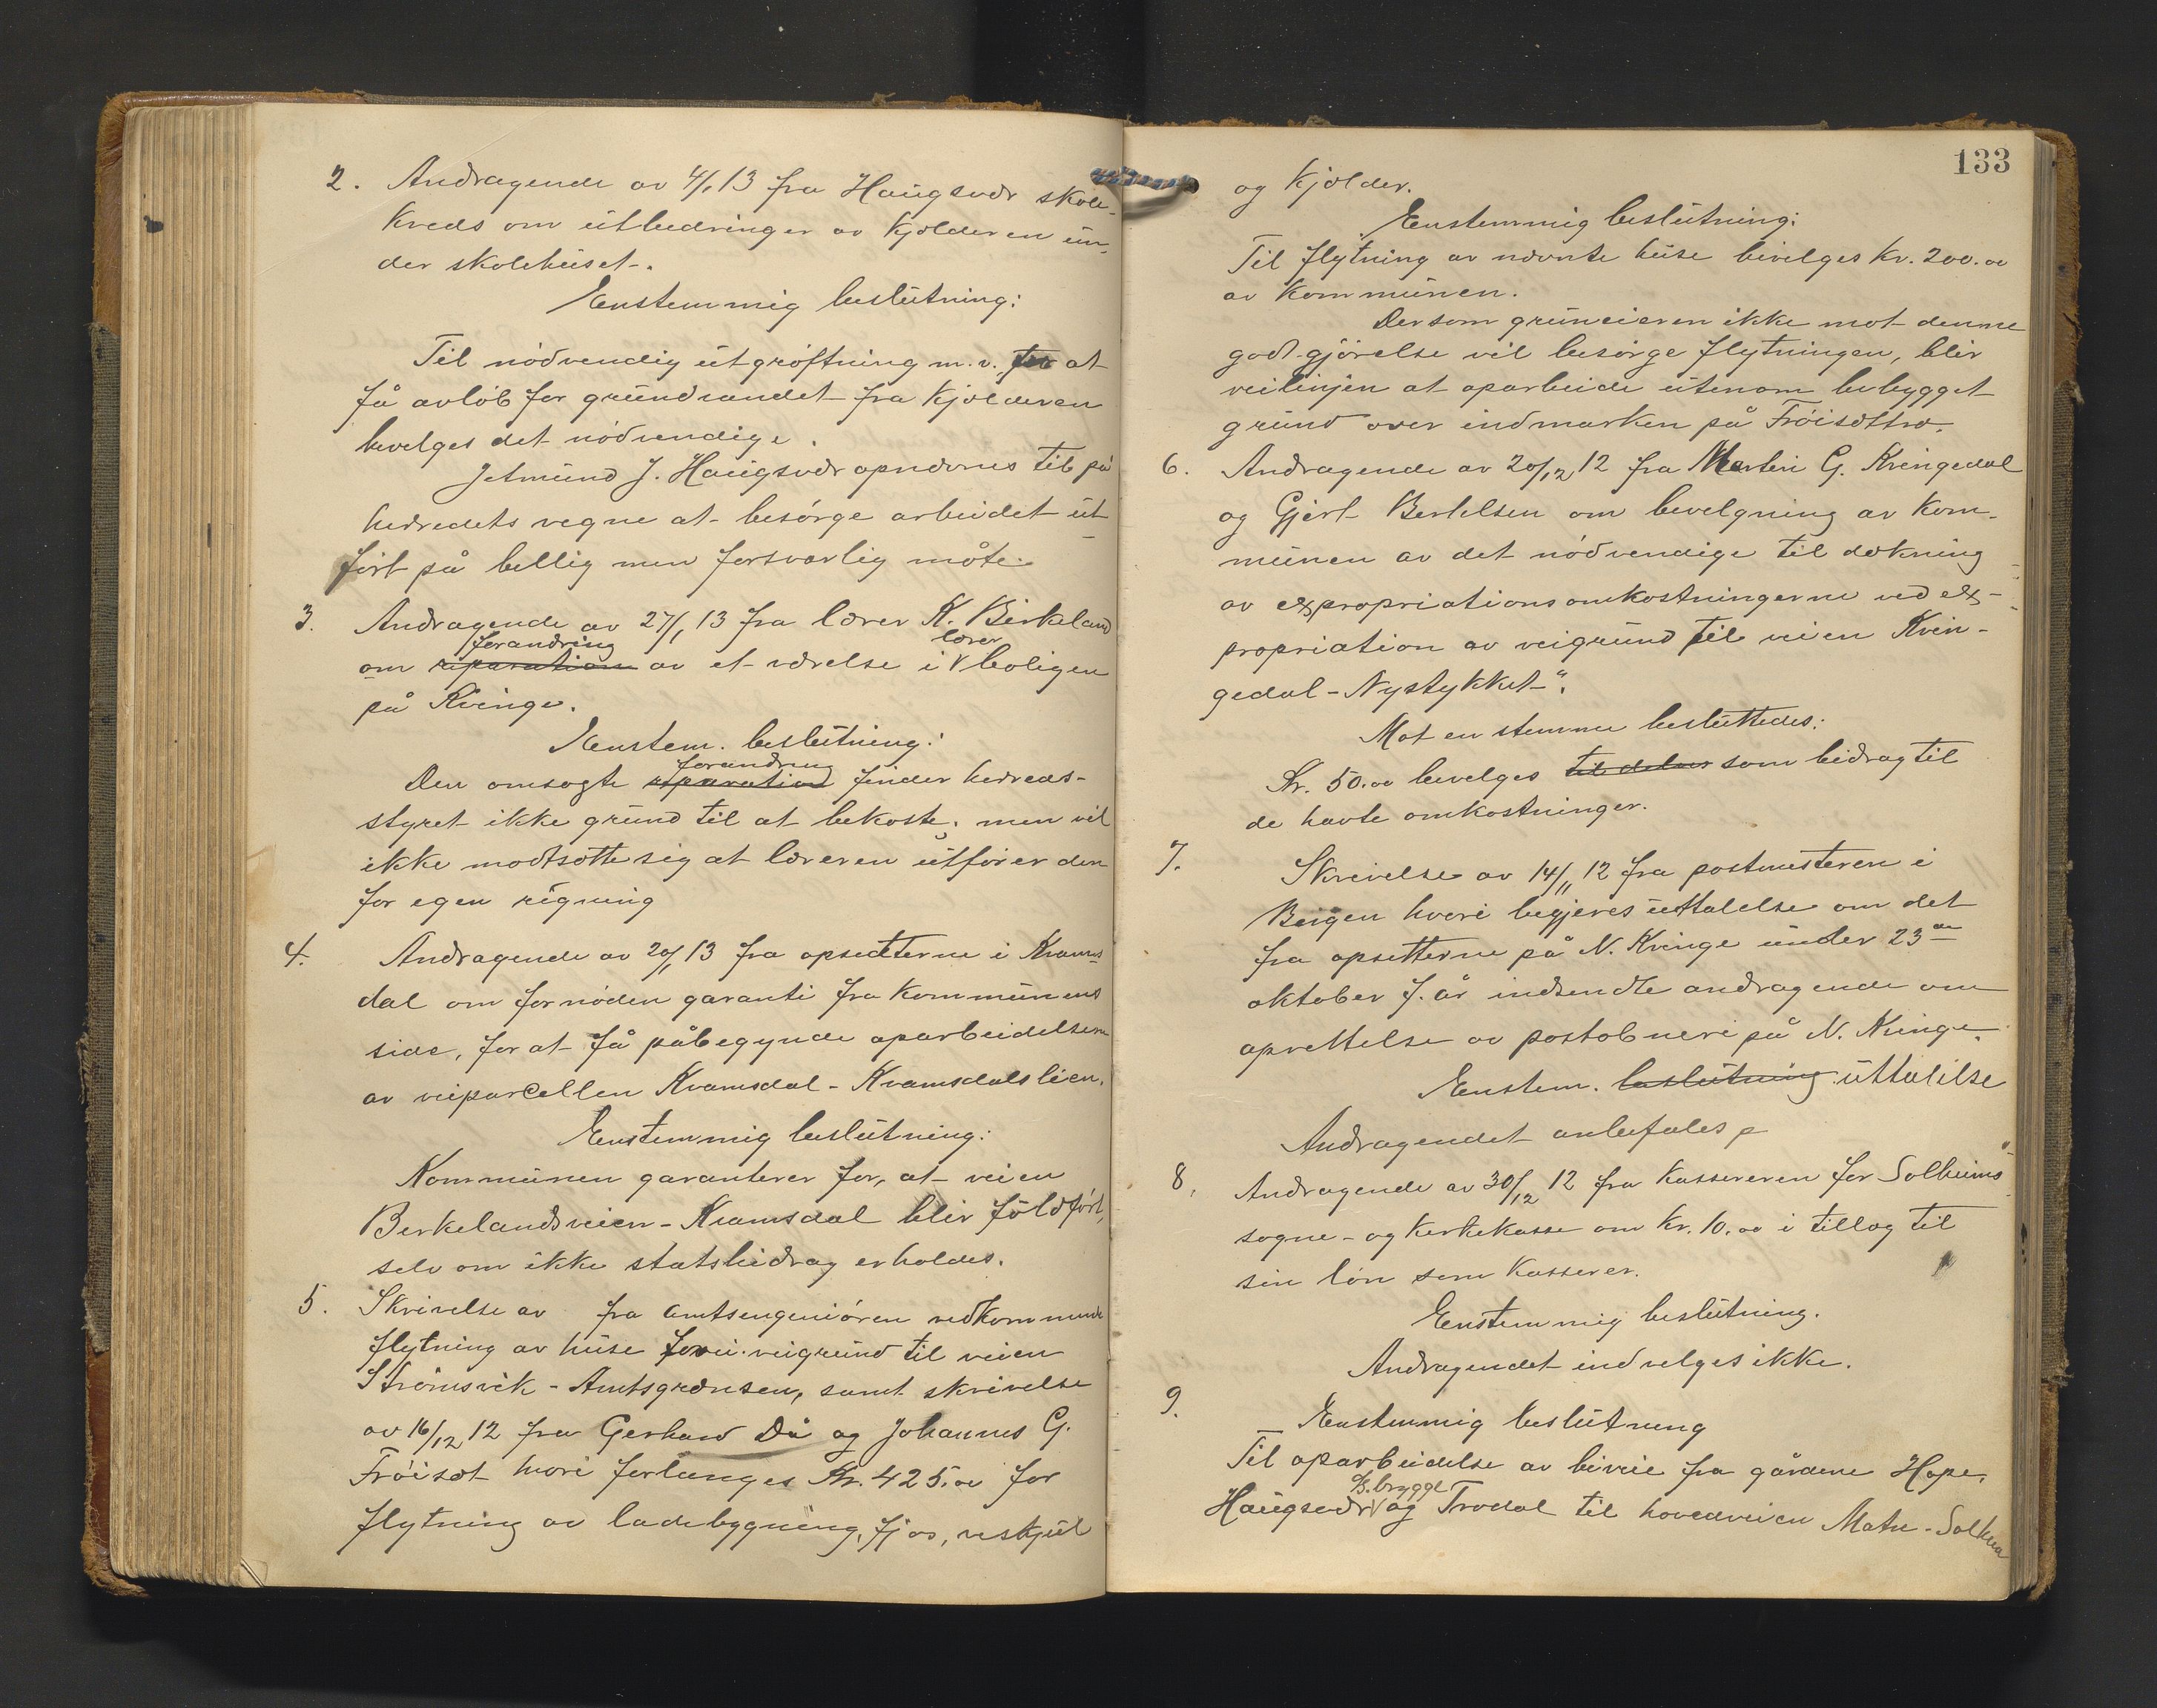 2. Andragende av 4/1 13 fra Haugsvær skole-
kreds om utbedringer av kjelderen un-
der skolehuset.
Enstemmig beslutning:
Til nödvendig utgröftning m.v. for at
få avlöb for grundvandet fra kjælderen
bevelges det nödvendige.
Jetmund J. Haugsvær opnævnes til på
herredets vegne at besörge arbeidet ut-
fört på billig men forsvarlig måte.
3. Andragende av 27/1 13 fra lærer K. Birkeland
forandring lærer
om reparation av et værelse i boligen
på Kvinge.
Enstem. beslutning:
forandring
Den omsøgte reparation finder herreds-
styret ikke grund til at bekoste; men vil
ikke modsætte sig at læreren utförer den
for egen regning
4. Andragende av 20/1 13 fra opsitterne i Kvams-
dal om fornöden garanti fra kommunens
side, for at få påbegynde oparbeidelsen
av veiparcellen Kvamsdal - Kvamsdalslien.
Enstemmig beslutning:
Kommunen garanterer for, at veien
Birkelandsveien - Kvamsdal blir fuldfört,
selv om ikke statsbidrag erholdes.
5. Skrivelse av fra amtsengeniören vedkommende
flytning av huse veigrund til veien
Strömsvik - Amtsgrænsen, samt skrivelse
av 16/12 12 fra Gerhard Då og Johannes G.
Fröiset hvori forlanges Kr. 425.00 for
flytning av ladebygning, fjös, veskjul
133
og kjelder.
Enstemmig beslutning:
Til flytning av nævnte huse bevilges kr. 200.00
av kommunen.
Dersom gruneieren ikke mot denne
godtgjörelse vil besörge flytningen, blir
veilinjen at oparbeide utenom bebygget
grund over indmarken på Fröisettro.
6. Andragende av 20/12 12 fra Martin G. Kvingedal
og Gjert Bertelsen om bevelgning av kom-
munen av det nödvendige til dekning
av expropriationsomkostningerne ved ex-
propriation av veigrund til veien Kvin-
gedal - Nystykket".
Mot en stemme besluttedes:
Kr. 50.00 bevelges til delvis som bidrag til
de havte omkostninger.
7. Skrivelse av 14/11 12 fra postmesteren i
Bergen hvori begjeres uttalelse om det
fra opsitterne på N. Kvinge under 23de
oktober f. år indsendte andragende om
oprettelse av postobneri på N. Kvinge.
Enstem. beslutning uttalelse
Andragendet anbefales
8. Andragende av 30/12 12 fra kassereren for Solheims
sogne- og kirkekasse om kr. 10.00 i tillæg til
sin lön som kasserer.
Enstemmig beslutning.
Andragendet indvelges ikke.
9. Enstemmig beslutning
Til oparbeidelse av bivei fra gårdene Hope,
Ds. brygge
Haugsvær og Trædal til hovedveien Matre - Solheim